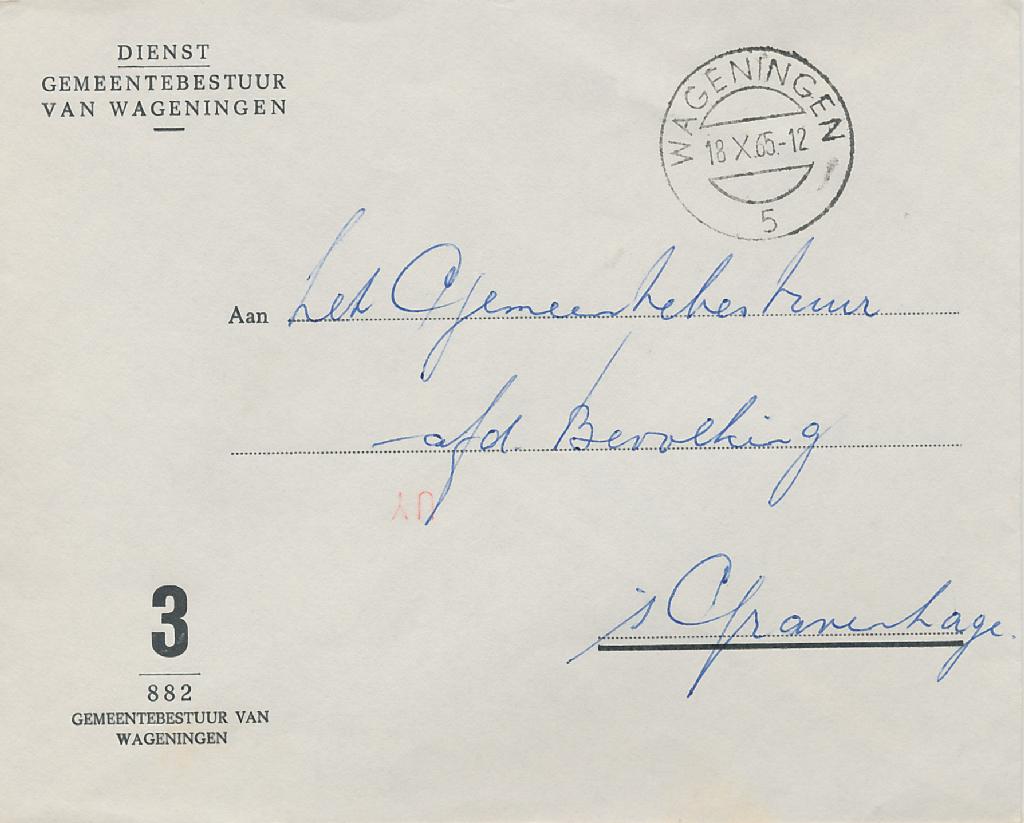 DIENST
GEMEENTEBESTUUR
VAN WAGENINGEN
WAGENINGEN
18 X.65.-12
5
Aan het Gemeentebestuur
-afd. Bevolking
's Gravenhage.
3
882
GEMEENTEBESTUUR VAN
WAGENINGEN